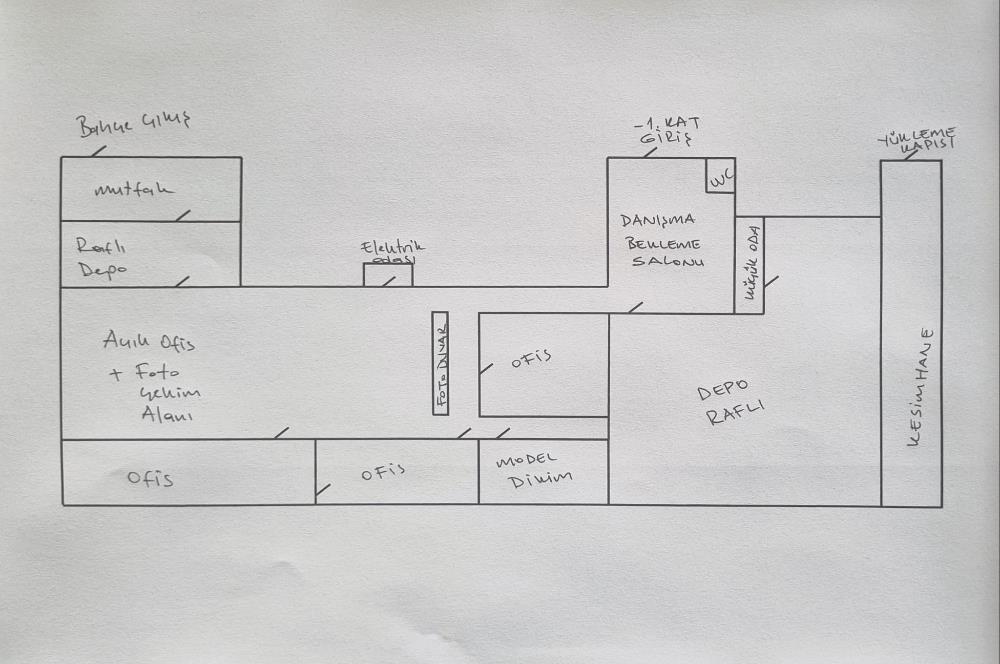 Bahçe Çıkış
mutfak
Raflı
Depo
Elektrik
odası
-1. KAT
GİRİŞ
WC
DANIŞMA
BEKLEME
SALONU
KÜÇÜK ODA
YÜKLEME
KAPISI
Açık Ofis
+ Foto
Çekim
Alanı
FOTO DUVAR
OFİS
DEPO
RAFLI
KESİMHANE
Ofis
OFİS
MODEL
DİKİM